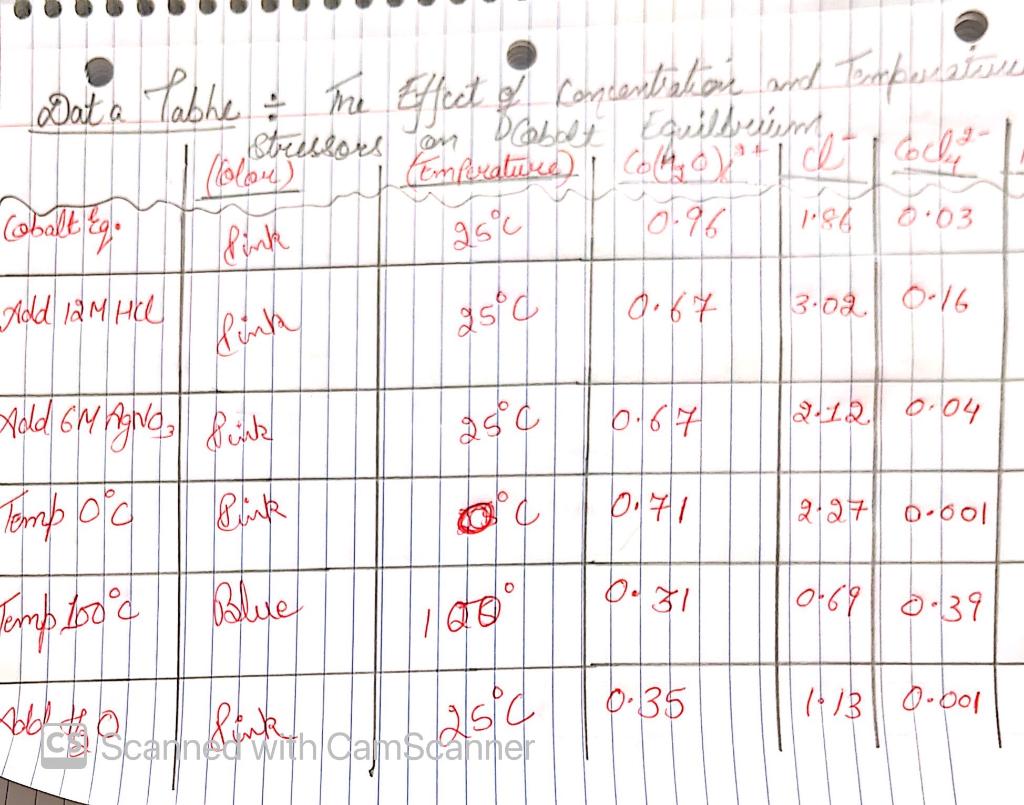 Data Table ÷ The Effect of Concentration and Temperature
Stressors on Cobalt Equilibrium
(Colour) (Temperature) Co(H₂O)₆²⁺ Cl⁻ CoCl₄²⁻
Cobalt Eq. Pink 25°C 0.96 1.86 0.03
Add 12M HCl Pink 25°C 0.67 3.02 0.16
Add 6M AgNO₃ Pink 25°C 0.67 2.12 0.04
Temp 0°C Pink 0°C 0.71 2.27 0.001
Temp 100°C Blue 100° 0.31 0.69 0.39
Add H₂O Pink 25°C 0.35 1.13 0.001
CS Scanned with CamScanner